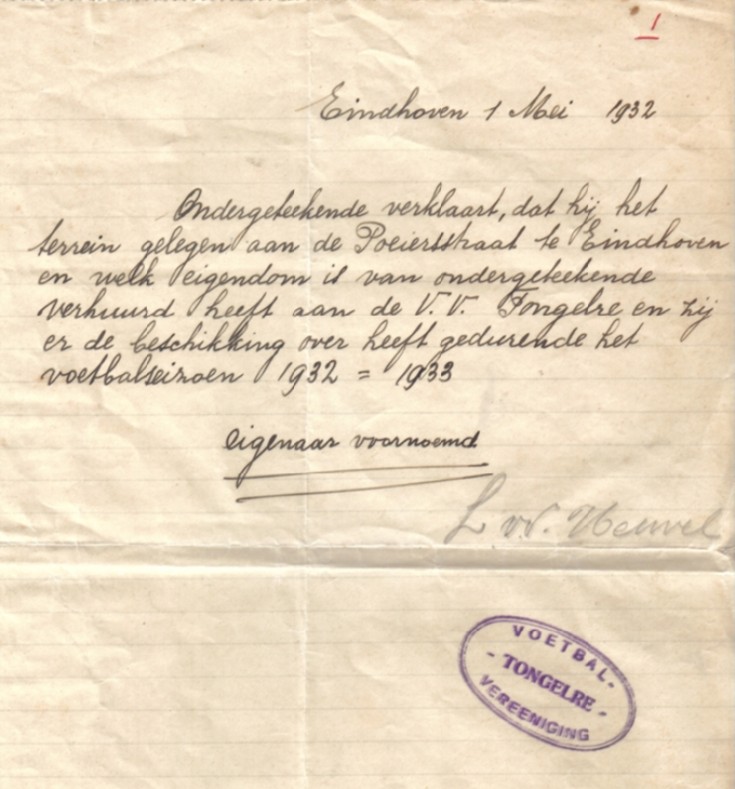 1
Eindhoven 1 Mei 1932
Ondergeteekende verklaart, dat hij het
terrein gelegen aan de Poeierstraat te Eindhoven
en welk eigendom is van ondergeteekende
verhuurd heeft aan de V.V. Tongelre en zij
er de beschikking over heeft gedurende het
voetbalseizoen 1932 = 1933
eigenaar voornoemd
L v.d. Heuvel
VOETBAL-
- TONGELRE -
VEREENIGING